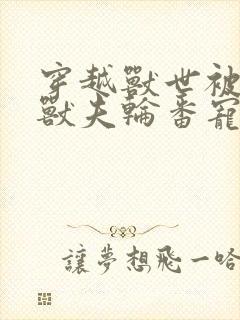 穿越獸世被
獸夫輪番寵
讓夢想飛一哈